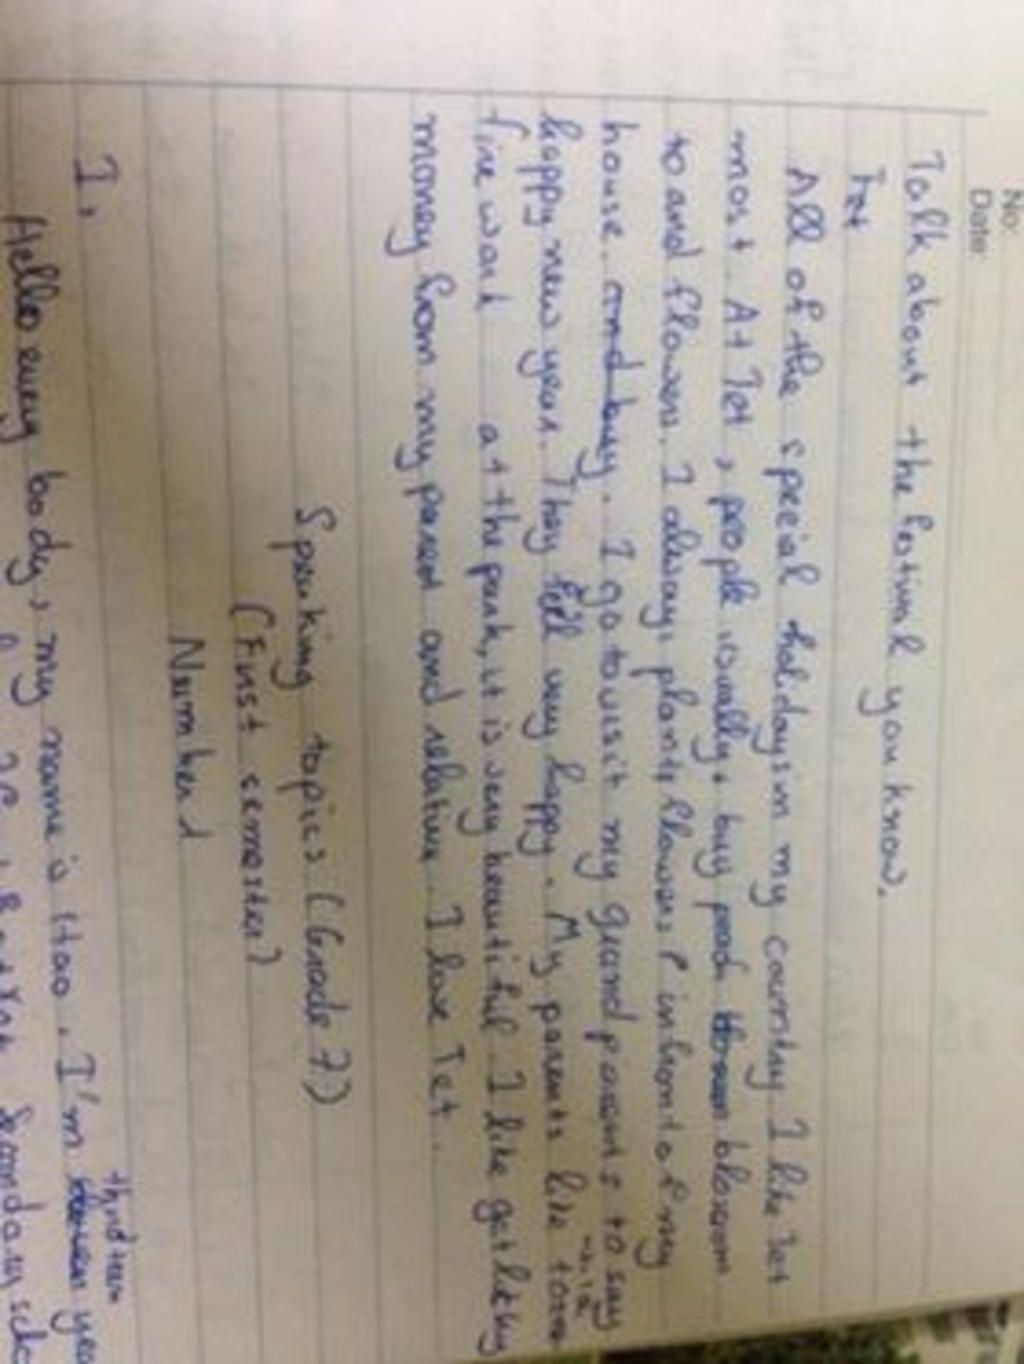 No:
Date:
Talk about the festival you know.
Tet
All of the special holidays in my country I like Tet
most. At Tet, people usually buy peach blossom
to and flowers. I always plants flowers in front of my
house. and buy. I go to visit my grand parents to say
happy new year. They feel very happy. My parents like
fire work at the park, it is very beautiful I like get lucky
money from my parent and relative. I love Tet..
Speaking topics (Grade 7))
(First semester)
Number 1
1,
thirdteen
Hello every body, my name is Hao. I'm
Secondary